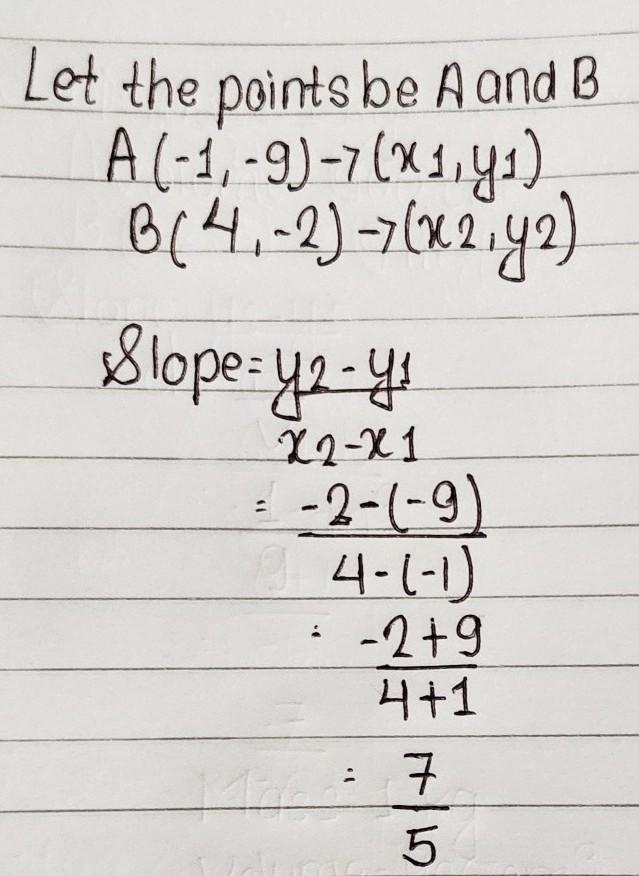 Let the points be A and B
A(-1, -9)→(x1, y1)
B(4, -2)→(x2, y2)
Slope = y2 - y1
x2 - x1
= -2 - (-9)
4 - (-1)
= -2 + 9
4 + 1
= 7
5